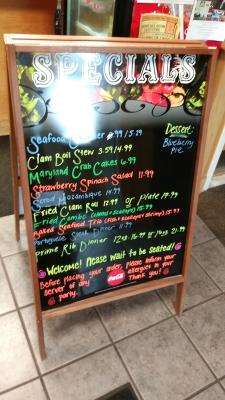 SPECIALS
Seafood Chowder 4.99 / 5.29
Clam Boil Stew 3.59 / 4.99
Maryland Crab Cakes 6.99
Strawberry Spinach Salad 11.99
Mozambique 14.99
Fried Clam Roll 12.99 or Plate 19.99
Fried Combo (clams + scallops) 15.99
Baked Seafood Trio (fish + scallops + shrimp) 15.99
Portuguese Steak Dinner 11.99
Prime Rib Dinner
Dessert:
Blueberry
Pie
Welcome! Please wait to be seated!
Before placing your order, please inform your
server of any allergies in your
party. Thank you!
Coca-Cola